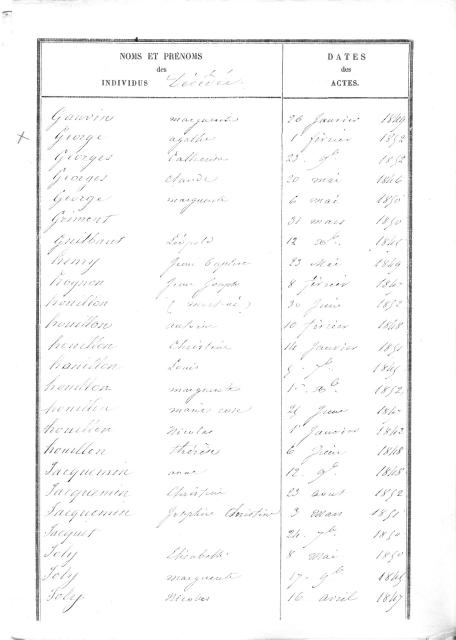 NOMS ET PRÉNOMS
des
INDIVIDUS Décédés
DATES
des
ACTES.
Gauvin marguerite 26 Janvier 1849
George agathe 1 février 1852
Georges Catherine 23 9b 1852
Georges claude 20 mai 1846
George marguerite 6 mai 1850
Grimont 31 mars 1850
Guilbaut Léopold 12 Xb
henry Jean Baptiste 23 Mai 1849
Jean Joseph 8 février
houillon (mort né) 30 Juin 1852
houillon antoine 10 février 1848
houillon Christine 14 Janvier 1851
houillon Louis
houillon marguerite Xb 1852
houillon marie rose Juin
houillon Nicolas 1 Janvier 1842
houillon thérèse 6 Juin 1848
Jacquemin anne 12 9b 1848
Jacquemin Christine 23 aout 1852
Jacquemin Josephine Christine 3 mars 1851
Jacquet 24 7b 1850
Joly Elisabeth 8 mai 1850
Joly marguerite 17 9b
Joly Nicolas 16 avril 1847